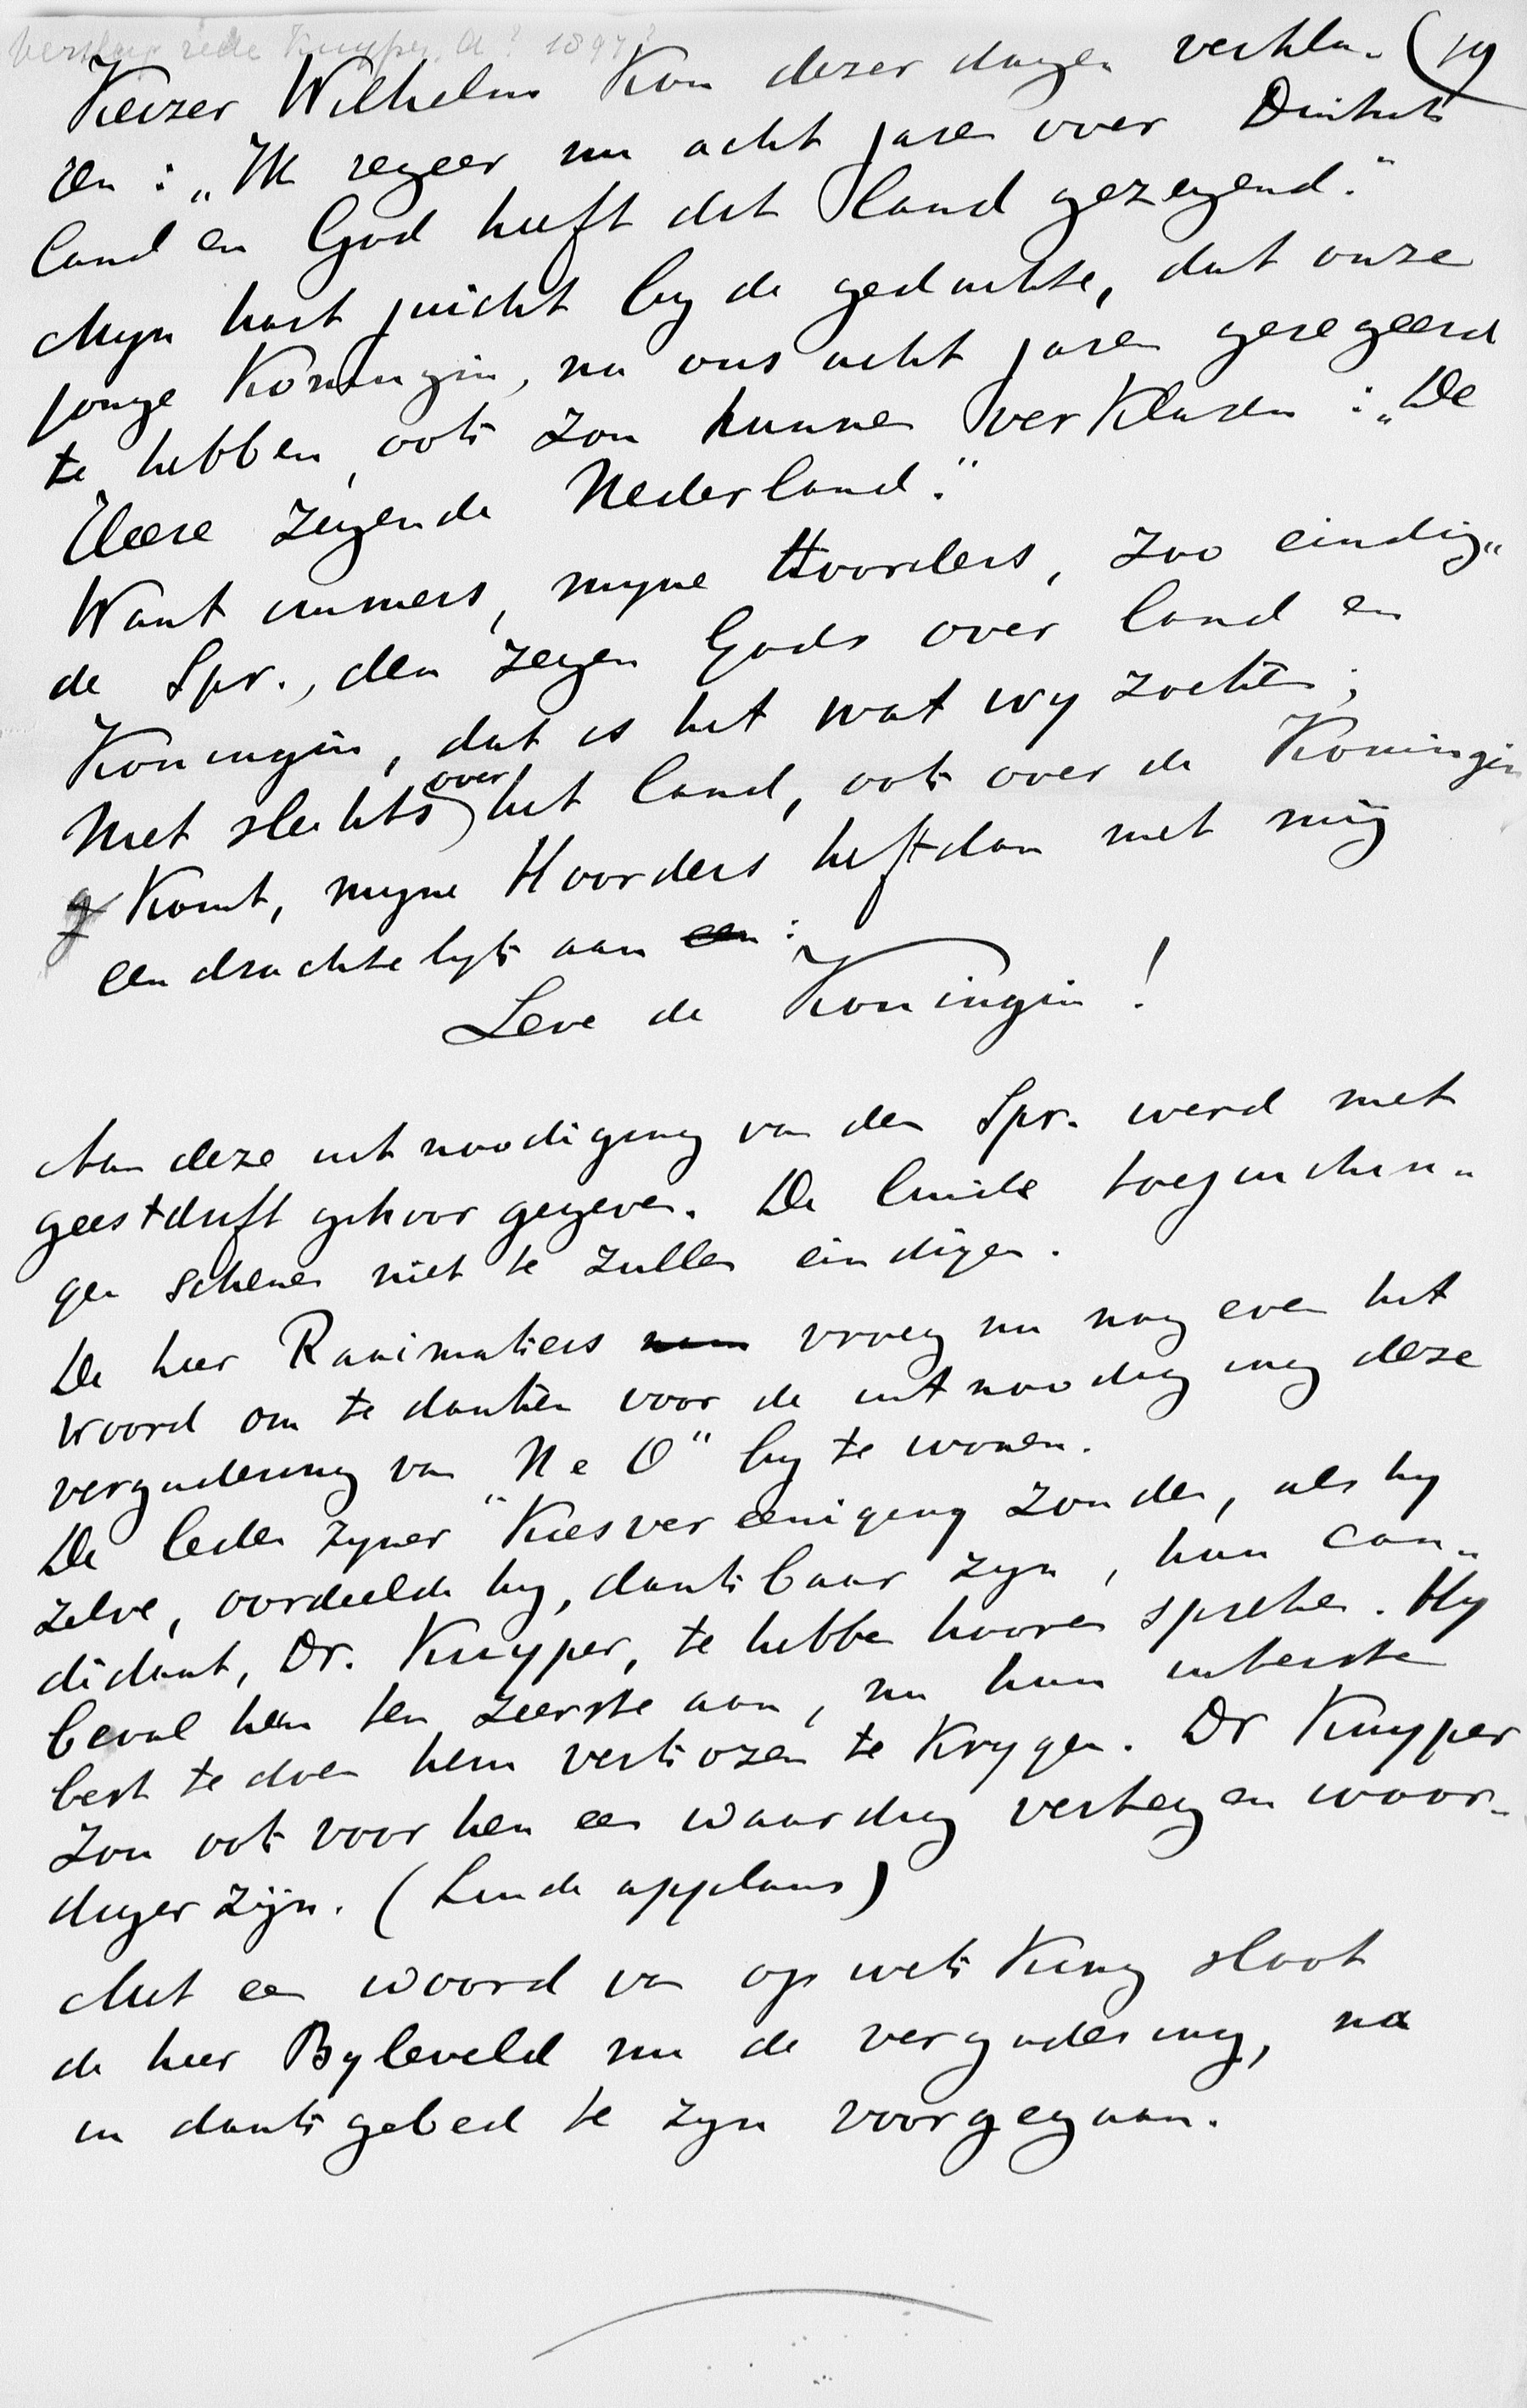 Verslag rede Kuyper, A? 1897?
19
Keizer Wilhelm kon dezer dagen verkla-
ren: „Ik regeer nu acht jaren over Duitsch
land en God heeft dit land gezegend."
Mijn hart juicht bij de gedachte, dat onze
jonge Koningin, na ons acht jaren geregeerd
te hebben, ook zou kunnen verklaren: „De
Heere zegende Nederland."
Want immers, mijne Hoorders, zoo eindig„
de Spr., den zegen Gods over land en
Koningin, dat is het wat wij zoeken;
Niet slechts over het land, ook over de Koningin
Komt, mijne Hoorders heft dan met mij
eendrachtelijk aan een:
Leve de Koningin!
Aan deze uitnoodiging van den Spr. werd met
geestdrift gehoor gegeven. De luide toejuichin„
gen schenen niet te zullen eindigen.
De heer Raaimakers nam vroeg nu nog even het
woord om te danken voor de uitnoodiging deze
vergadering van "N e O" bij te wonen.
De leden zijner Kiesvereeniging zouden, als hij
zelve, oordeelde hij, dankbaar zijn, hun can„
didaat, Dr. Kuyper, te hebben hooren spreken. Hij
beval hen ten zeerste aan, nu hun uiterste
best te doen hem verkozen te krijgen. Dr Kuyper
zou ook voor hen een waardig vertegenwoor-
diger zijn. (Luide applaus)
Met een woord van opwekking sloot
de heer Byleveld nu de vergadering, na
in dankgebed te zijn voorgegaan.